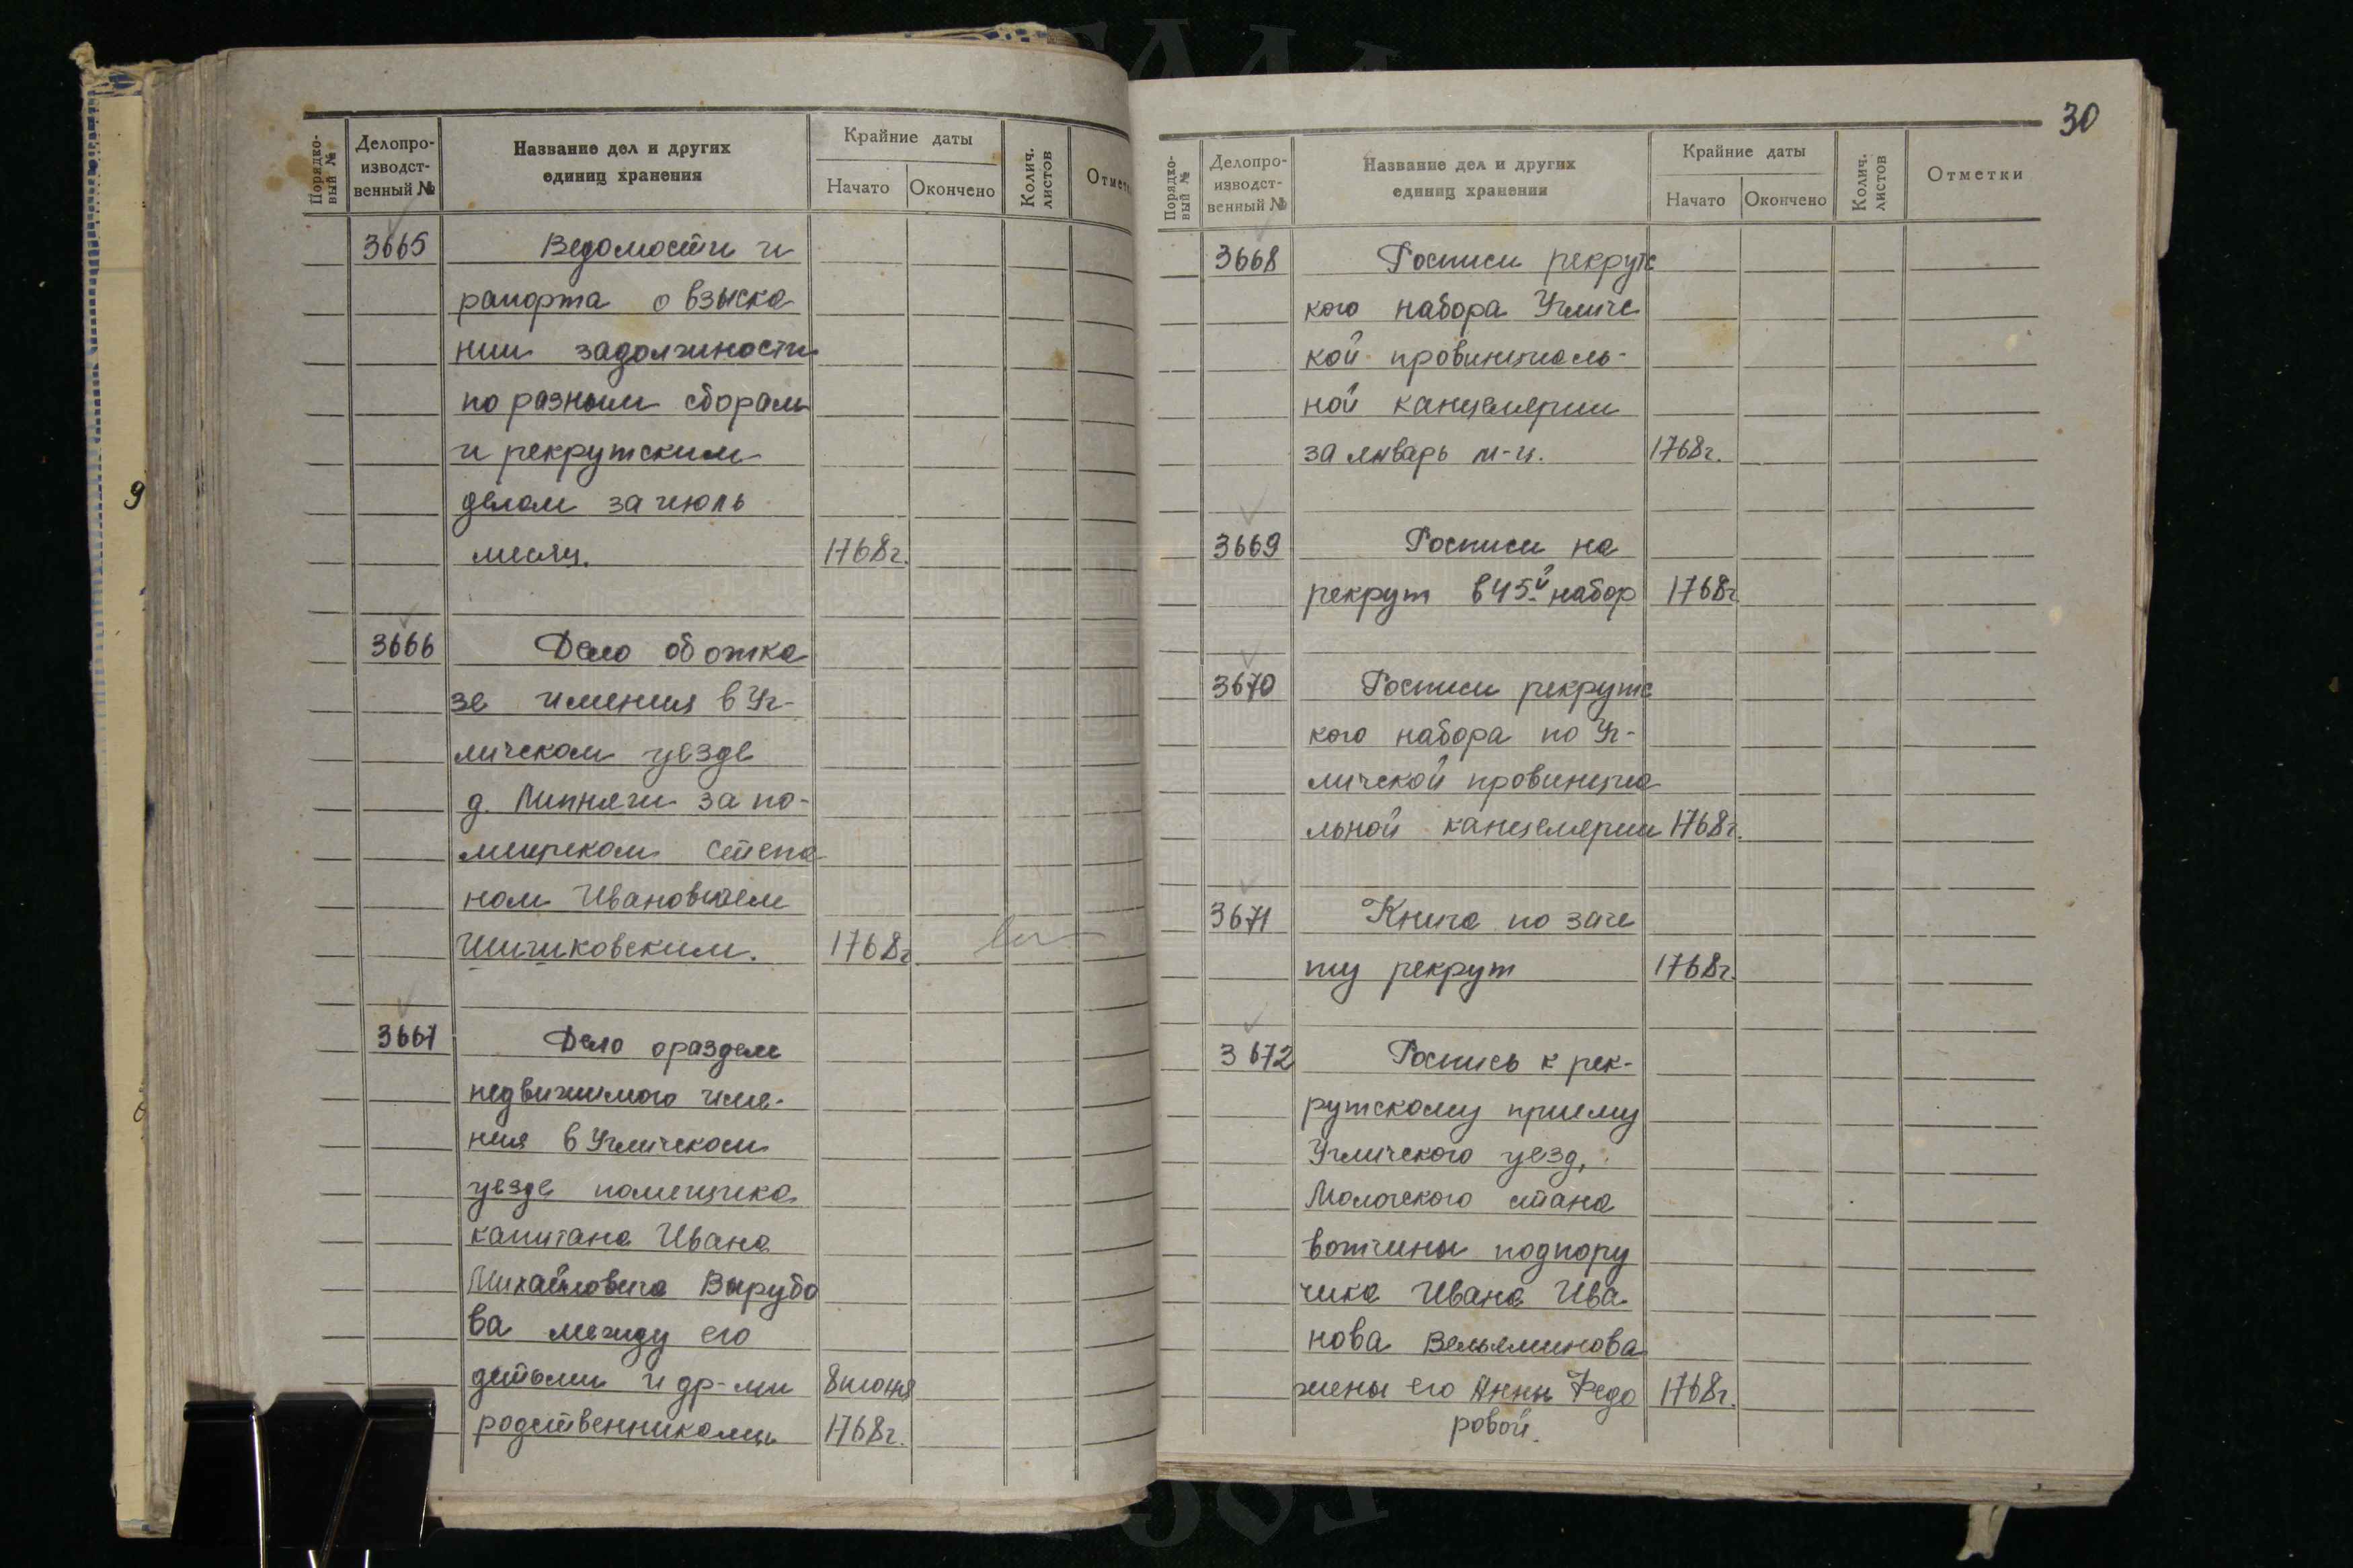 Порядко-
вый №
Делопро-
изводст-
венный №
Название дел и других
единиц хранения
Крайние даты
Начато
Окончено
Колич.
листов
Отметк
3665
Ведомости и
рапорта о взыска
нии задолжности
по разным сборам
и рекрутским
делам за июль
месяц.
1768г.
3666
Дело об отка
зе имения в Уг-
личском уезде
д. Липняги за по-
мещиком Степа
ном Ивановичем
Шишковским.
1768г
3667
Дело о разделе
недвижимого име-
ния в Угличском
уезде помещика
капитана Ивана
Михайловича Вырубо
ва между его
детьми и др-ми
8 июня
родственниками
1768г.
30
Порядко-
вый №
Делопро-
изводст-
венный №
Название дел и других
единиц хранения
Крайние даты
Начато
Окончено
Колич.
листов
Отметки
3668
Росписи рекрутс
кого набора Угличс
кой провинциаль-
ной канцелярии
за январь м-ц.
1768г.
3669
Росписи на
рекрут в 45й набор
1768г
3670
Росписи рекрутс
кого набора по Уг-
личской провинциа
льной канцелярии
1768г.
3671
Книга по заче
ту рекрут
1768г.
3672
Роспись к рек-
рутскому приему
Угличского уезд,
Моложского стана
вотчины подпору
чика Ивана Ива
нова Вельяминова
жены его Анны Федо
1768г.
ровой.
9